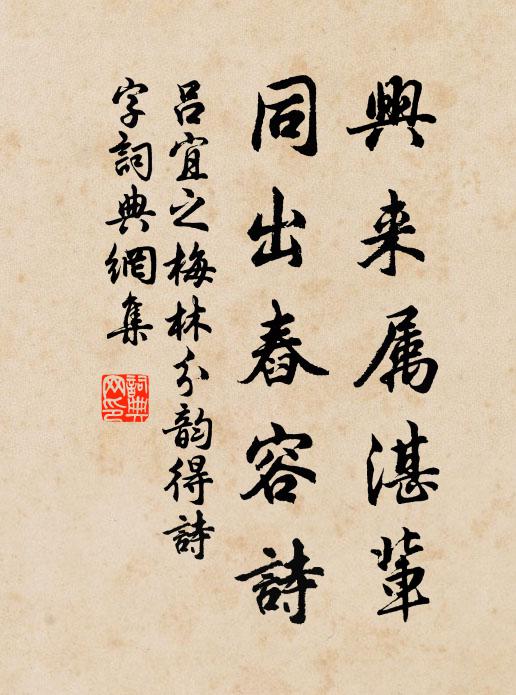 興来属湛輩
同出舂容詩
吕宜之梅林分韵得詩
字詞典網集
詞典网印